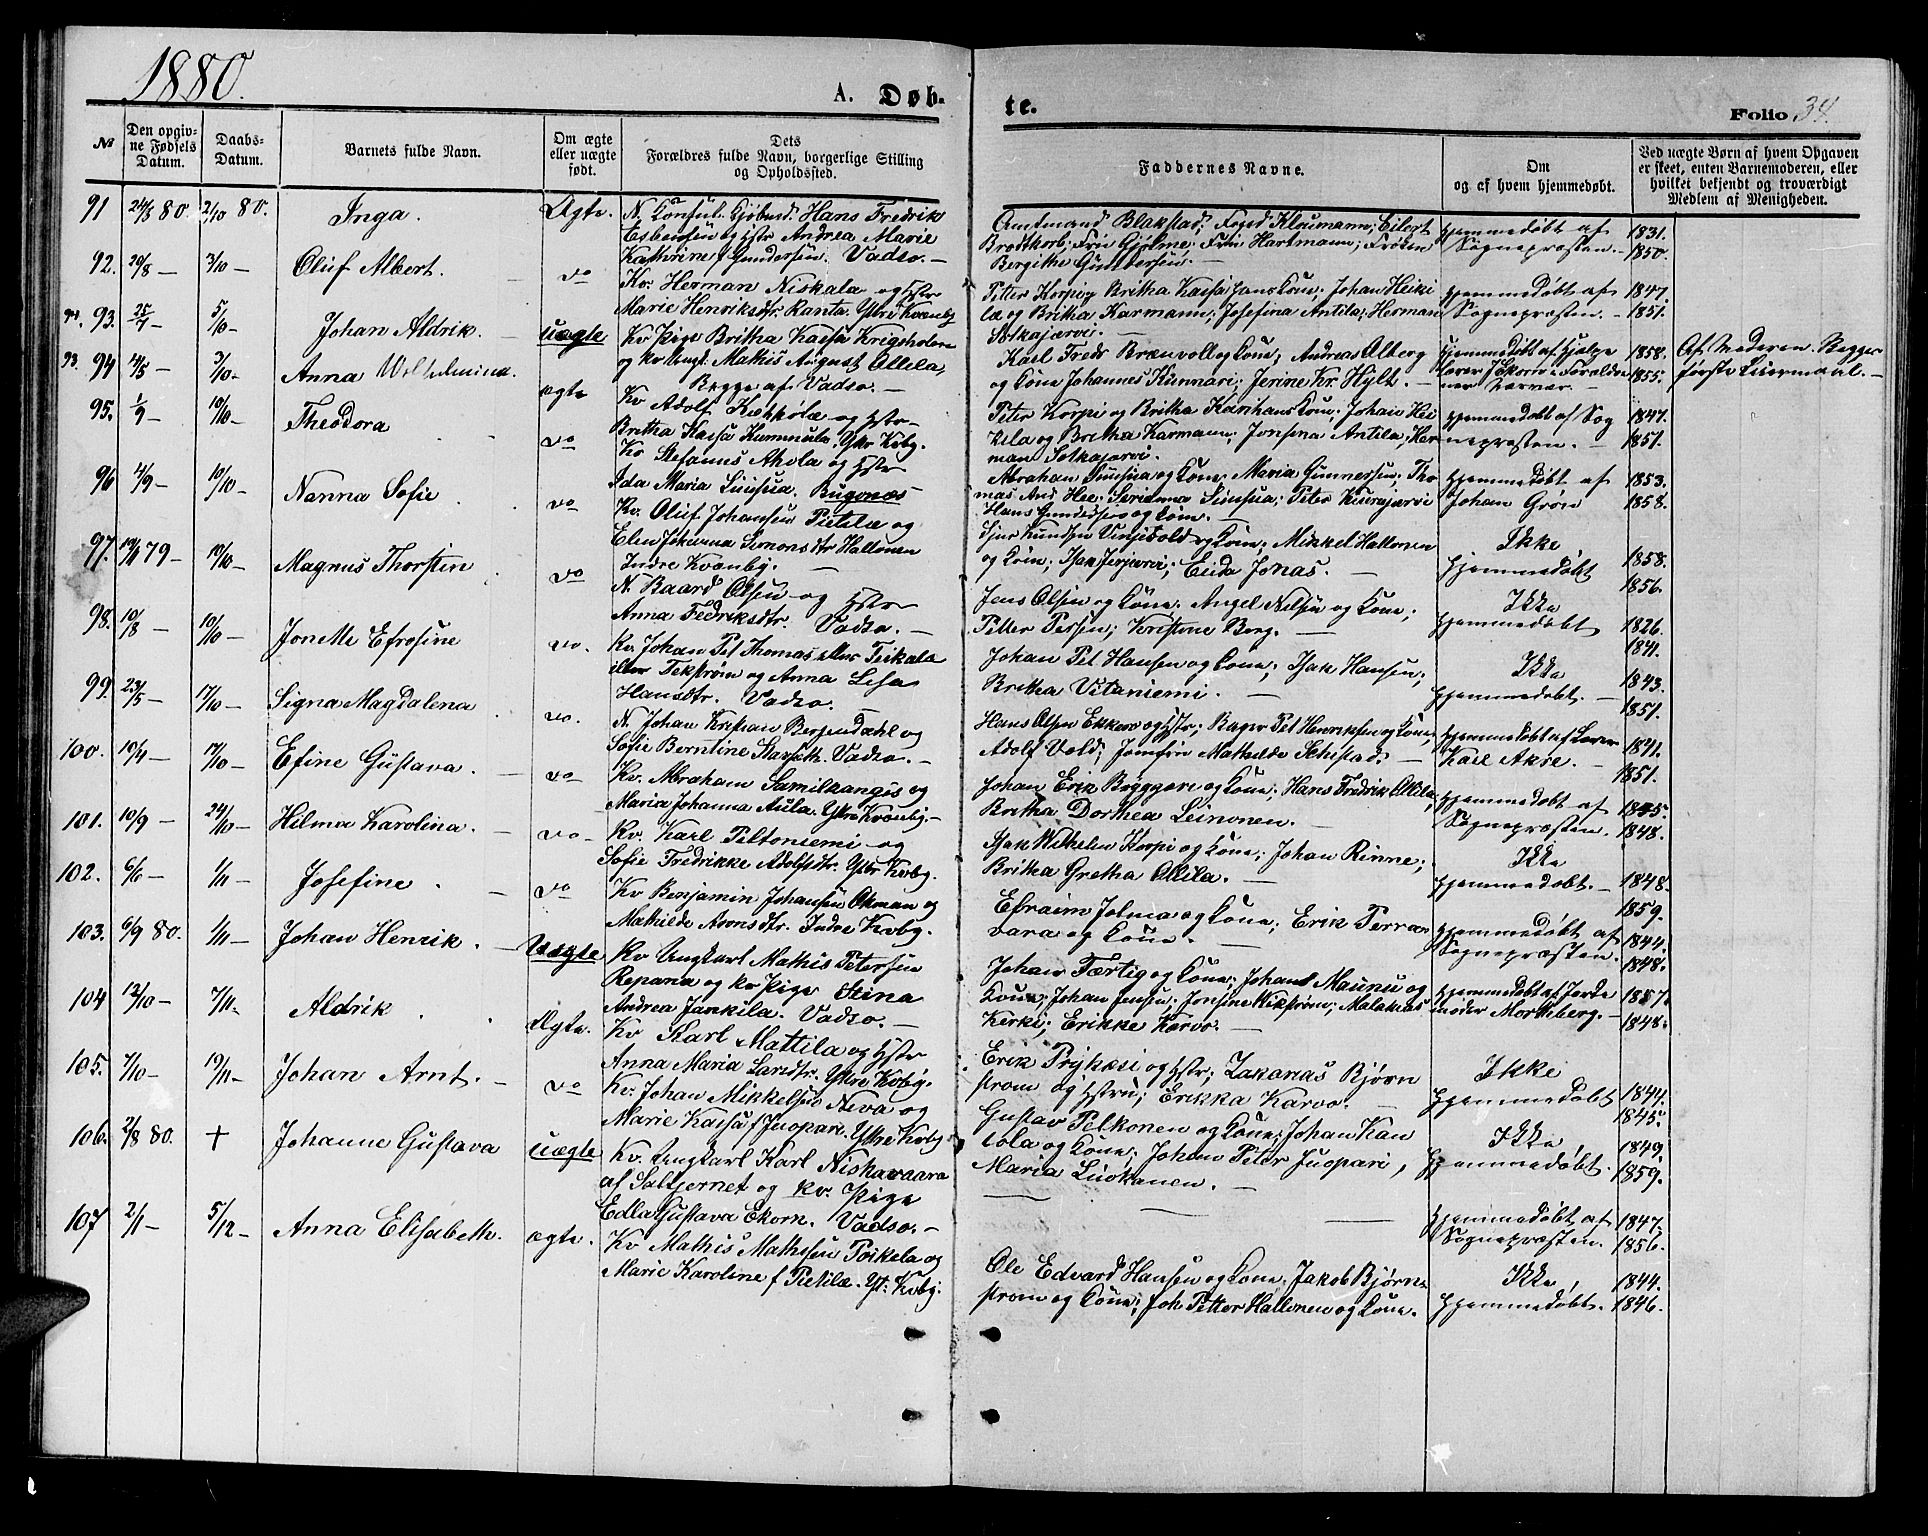 1880.
A. Døb-
te.
Folio 34.
№
Den opgiv-
ne Fødsels
Datum.
Daabs-
Datum.
Barnets fulde Navn.
Om ægte
eller uægte
født.
Dets
Forældres fulde Navn, borgerlige Stilling
og Opholdssted.
Faddernes Navne.
Om
og af hvem hjemmedøbt.
Ved uægte Børn af hvem Opgaven
er skeet, enten Barnemoderen, eller
hvilket bekjendt og troværdigt
Medlem af Menigheden.
91 80. 2/10 80. Inga. Ægte.
N. Consul. Kjøbmd. Hans Fredrik
Esbensen og Hstr Andrea Marie
Kathrine f Gundersen. Vadsø. —
Amtmand Blakstad; Foged Kloumann; Eilert
Brodtkorb; Fru Gjølme; Fru Hartmann; Frøken
Bergithe Gundersen. —
Hjemmedøbt af
Sognepræsten. —
1831.
1850.
92. 29/8 — 3/10 — Oluf Albert. do
Kv. Herman Niskala og Hstr
Marie Henriksdtr. Ranta. Ytre Kvænby
Petter Korpi og Britha Kaisa Hans Kone; Johan Heiki
læ og Britha Karmann; Josefina Antila; Herman
Solkajærvi.
Hjemmedøbt af
Sognepræsten. —
1847.
1851.
94. 93. 25/7 — 5/10 — Johan Aldrik. — uægte
Kv Pige Britha Kaisa Krigsholem
og kv Ungk. Mathis August Ollila,
Begge af Vadsø. —
Karl Fredr Brænvoll og Kone; Andreas Alberg
og Kone Johannes Kunnari; Jerine Kr. Hylt. —
Hjemmedøbt af Hjelpe
1858.
1855.
Af Moderen. Begges
første Leiermaal. —
93. 94 14/5 — 3/10 — Anna Wilhelmina. ægte
Kv Adolf Kækkølæ og Hstr
Britha Kaisa Kummula. Ytr Kvby.
Peter Korpi og Britha Karihans Kone; Johan Hei
kila og Britha Karmann; Jonsina Antila; Her
man Solkajærvi.
Hjemmedøbt af Sog
nepræsten. —
1847.
1851.
95. 1/9 — 10/10 — Theodora do
Kv Stefanus Ahola og Hstr
Ida Maria Siusua. Bugønæs
Abraham Siusua og Kone; Maria Gunnersen; Tho
Hjemmedøbt af
Johan Grøn
1853.
1858.
96 4/9 — 10/10 — Nanna Sofie do
Kv. Oluf Johansen Pietilæ og
Elen Johanna Simonsdtr Hallonen
Indre Kvænby. —
og Kone; Mikkel Hallonen
og Kone; Isak Jerjærvi; Erida Jonas. —
Ikke
Hjemmedøbt
1858.
1856.
97. 79 — 10/10 — Magnus Thorstein do
N. Baard Olsen og Hstr
Anna Fedriksdtr. Vadsø. —
Jens Olsen og Kone; Angel Nilsen og Kone;
Petter Persen; Kristine Berg. —
Ikke
Hjemmedøbt
1826.
1841.
98. 10/8 — 10/10 — Jonette Efrosine do.
Kv. Johan Pet Thomas eller Teikala
eller Tekstrøm og Anna Lisa
Hansdtr. Vadsø. —
Johan Pet Hansen og Kone; Isak Hansen;
Britha Vitaniemi. —
Ikke
Hjemmedøbt. —
1843.
1851.
99. 23/5 — 17/10 — Signa Magdalena do.
N. Johan Kristian Bergendahl og
Sofie Berntine Vadsø. —
Hans Olsen Ekkerø og Hstr; Bager Pet Henriksen og Kone;
Adolf Vold; Jomfru Mathilde Schistad. —
Hjemmedøbt af Lærer
Karl Akre. —
1841.
1851.
100. 10/4 — 17/10 — Efine Gustava. — do
Kv. Abraham Samilkangis og
Maria Johanna Aula. Ytre Kvænby. —
Johan Erik Byggere og Kone; Hans Fredrik Ollila;
Britha Dorthea Leinonen. —
Hjemmedøbt af
Sognepræsten. —
1845.
1848.
101. 10/9 — 24/10 — Hilma Karolina. — do —
Kv. Karl Peltoniemi og
Sofie Fredrikke Adolfsdtr. Ytr Kvby.
Isak Wilhelm Korpi og Kone; Johan Rinne;
Britha Gretha Ollila. —
Ikke
Hjemmedøbt. —
1848.
1859.
102. 6/6 — 1/11 — Josefine. — do
Kv Benjamin Johansen Oxman og
Mathilde Aronsdtr. Indre Kvby.
Efraim Jolma og Kone; Erik Perran
vara og Kone. —
Hjemmedøbt af
Sognepræsten.
1844.
1848.
103. 6/9 80. 1/11 — Johan Henrik. — Uægte
Kv Ungkarl Mathis Petersen
Repana og kv Pige Stina
Andrea Jankila. Vadsø. —
Johan Færtig og Kone; Johan Maunu og
Kone; Johan Jensen; Jonsine Wikstrøm; Malakias
Kerki; Erikke Karvo. —
Hjemmedøbt af Jorde
moder Mortsberg. —
1857.
1848.
104 12/10 — 7/11. Aldrik Ægte.
Kv Karl Mattila og Hstr
Anna Maria Larsdtr. Ytre Kvby.
Erik Prykæsi og Hstr; Zakarias Bjørn
strøm og Hstru; Erikka Karvo. —
Ikke
Hjemmedøbt
1844.
1845.
105. 7/10 — 19/11 — Johan Arnt. — do
Kv. Johan Mikkelsen Neva og
Marie Kaisa f Juopari. Ytre Kvby
Gustav Pelkonen og Kone; Johan Kan
tola og Kone; Johan Peter Juopari,
Maria Luokanen. —
Ikke
Hjemmedøbt.
1849.
1859.
106. 2/8 80. + Johanne Gustava uægte
Kv. Ungkarl Karl Niskavaara
af Saltjernet og kv. Pige
Edla Gustava Ekorn. Vadsø. —
— —
Hjemmedøbt af
Sognepræsten.
1847.
1856.
107 2/11 — 5/12 — Anna Elisabeth. ægte.
Kv Mathis Mathisen Poikela og
Marie Karoline f Pietilæ. Yt. Kvby.
Ole Edvard Hansen og Kone; Jakob Bjørn
strøm og Kone; Joh Petter Hallonen og Kone.
Ikke
Hjemmedøbt.
1844.
1846.